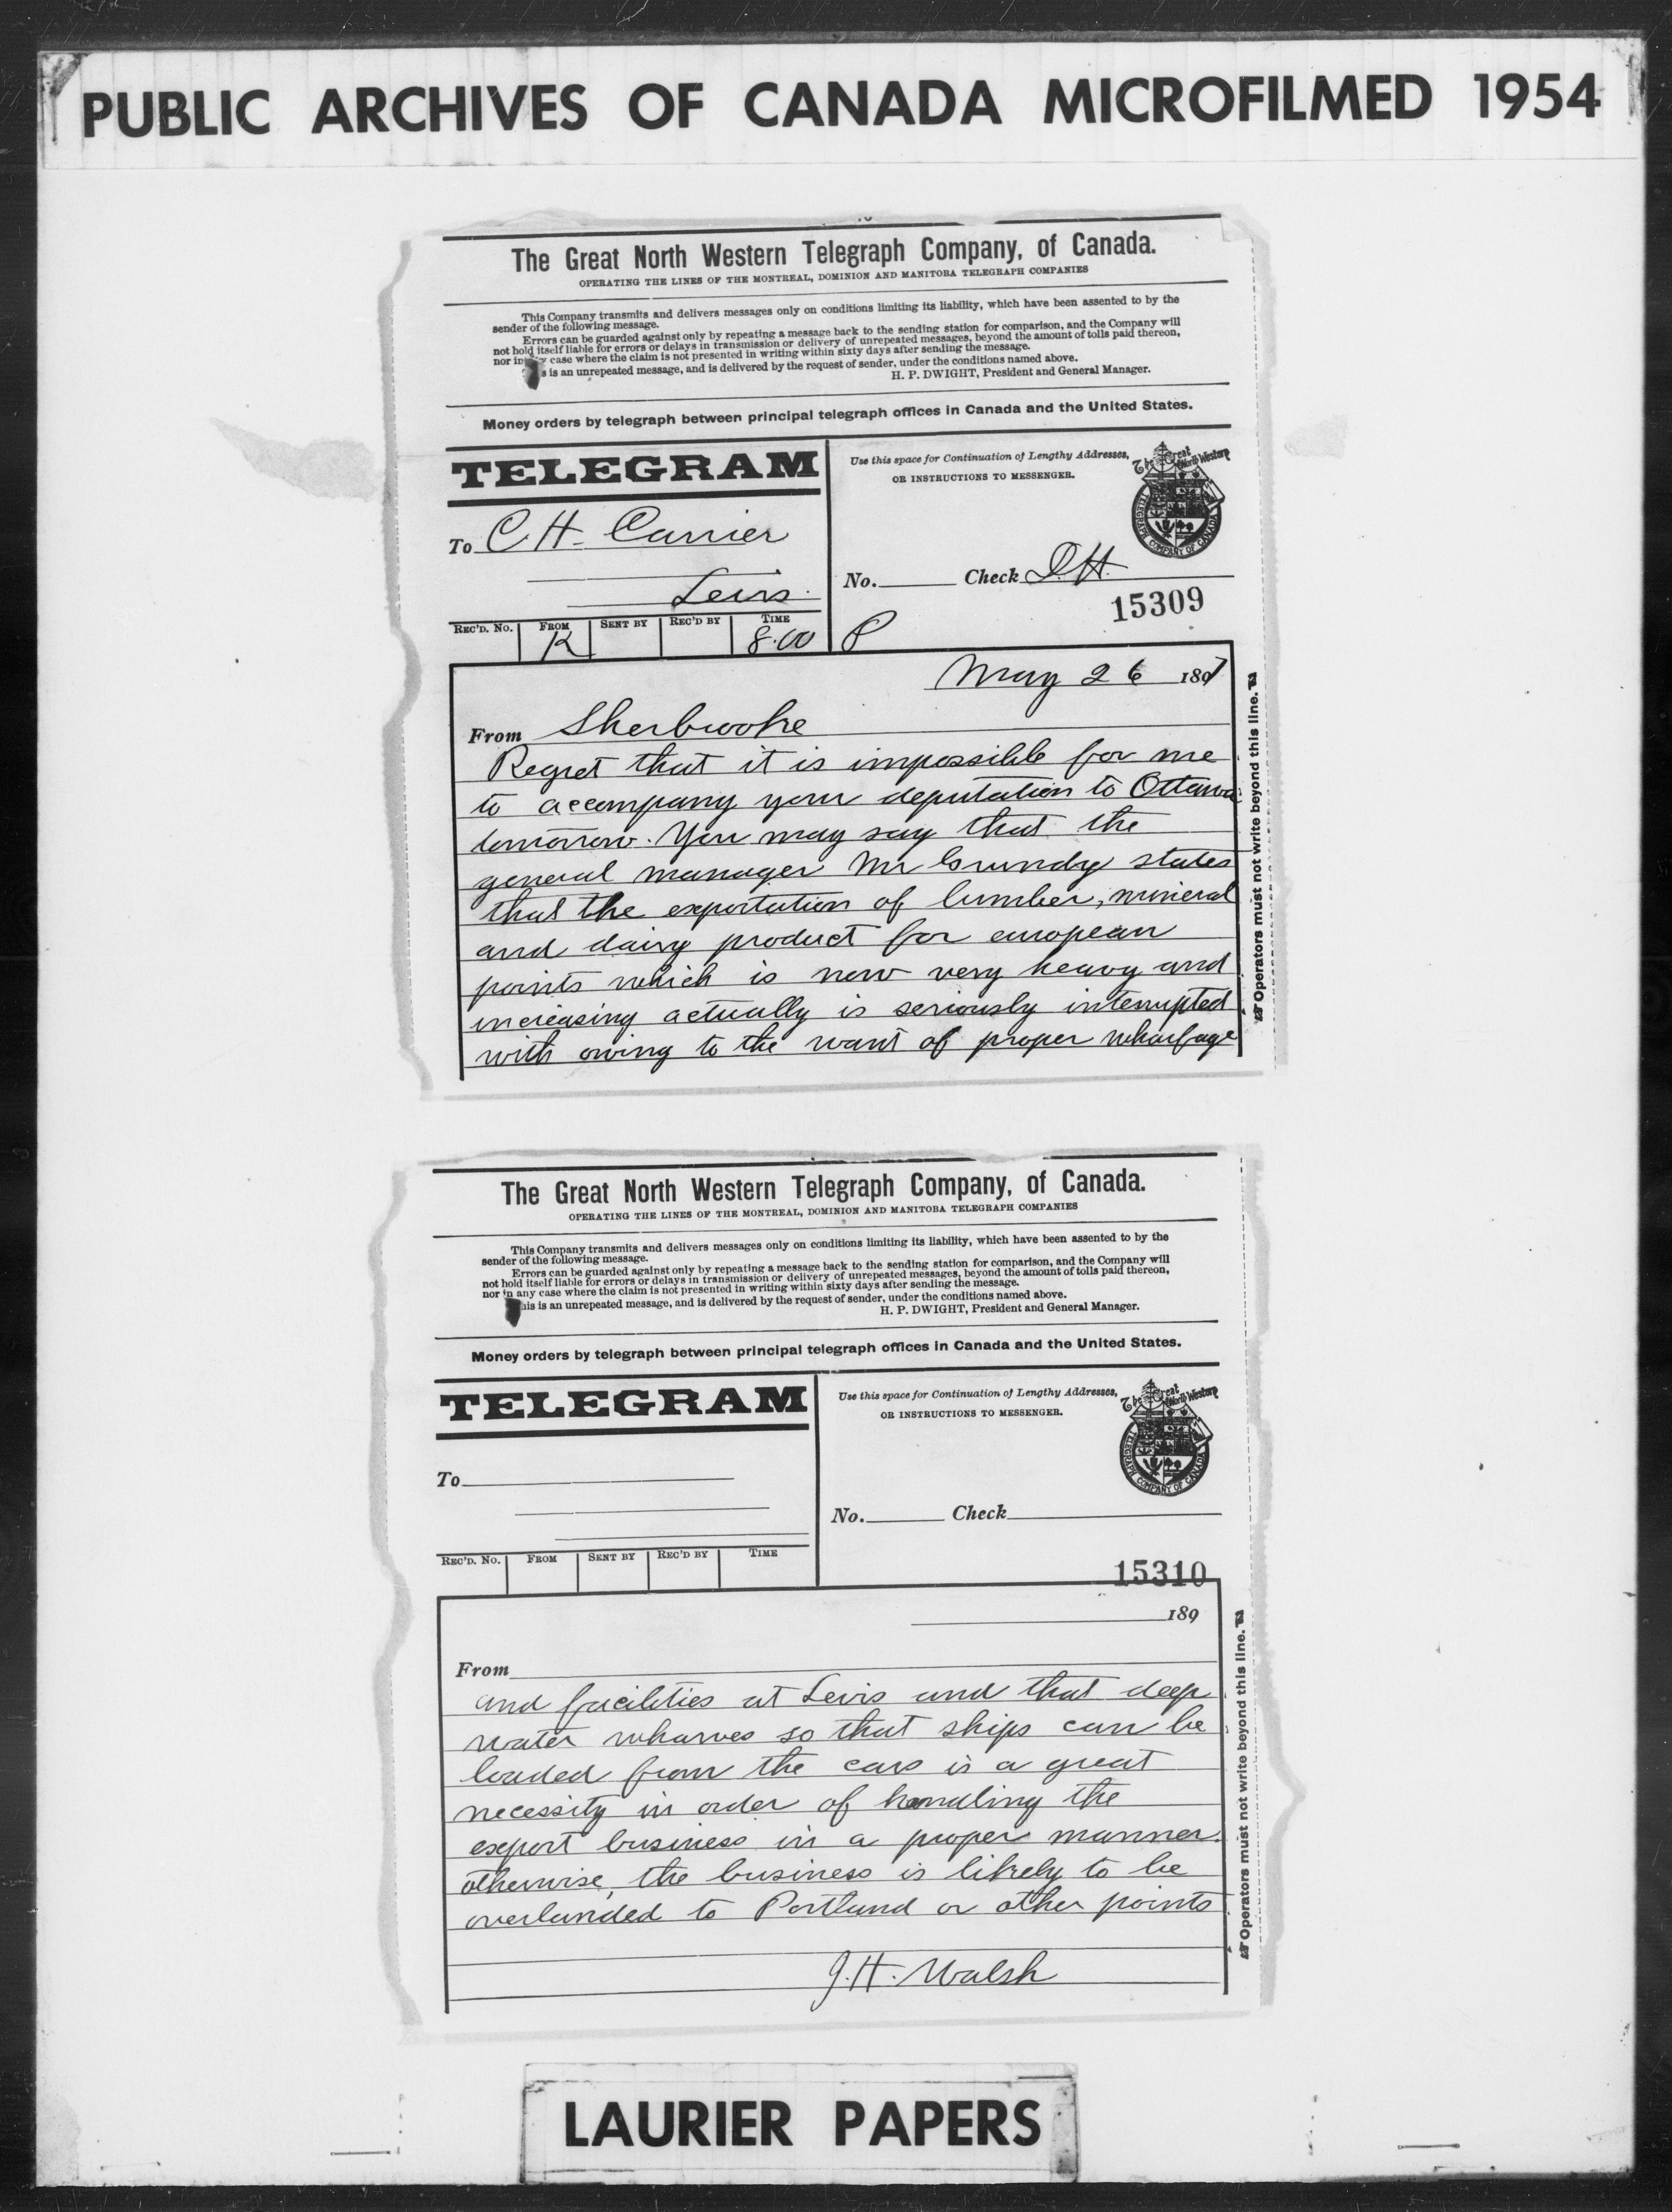 PUBLIC ARCHIVES OF CANADA MICROFILMED 1954
The Great North Western Telegraph Company, of Canada.
OPERATING THE LINES OF THE MONTREAL, DOMINION AND MANITOBA TELEGRAPH COMPANIES
This Company transmits and delivers messages only on conditions limiting its liability, which have been assented to by the
sender of the following message.
Errors can be guarded against only by repeating a message back to the sending station for comparison, and the Company will
not hold itself liable for errors or delays in transmission or delivery of unrepeated messages, beyond the amount of tolls paid thereon,
nor in any case where the claim is not presented in writing within sixty days after sending the message.
s is an unrepeated message, and is delivered by the request of sender, under the conditions named above.
H. P. DWIGHT, President and General Manager.
Money orders by telegraph between principal telegraph offices in Canada and the United States.
TELEGRAM
Use this space for Continuation of Lengthy Addresses,
OR INSTRUCTIONS TO MESSENGER.
The Great North Western
TELEGRAPH COMPANY OF CANADA
To C. H. Carrier
Levis.
No. Check D.H.
15309
REC'D. NO. FROM SENT BY REC'D BY TIME
K 8.00 P
May 26 1897
From Sherbrooke
Regret that it is impossible for me
to accompany your deputation to Ottawa
tomorrow. You may say that the
general manager Mr Grundy states
that the exportation of lumber, mineral
and dairy product for european
points which is now very heavy and
increasing actually is seriously interrupted
with owing to the want of proper wharfage
Operators must not write beyond this line.
The Great North Western Telegraph Company, of Canada.
OPERATING THE LINES OF THE MONTREAL, DOMINION AND MANITOBA TELEGRAPH COMPANIES
This Company transmits and delivers messages only on conditions limiting its liability, which have been assented to by the
sender of the following message.
Errors can be guarded against only by repeating a message back to the sending station for comparison, and the Company will
not hold itself liable for errors or delays in transmission or delivery of unrepeated messages, beyond the amount of tolls paid thereon,
nor in any case where the claim is not presented in writing within sixty days after sending the message.
his is an unrepeated message, and is delivered by the request of sender, under the conditions named above.
H. P. DWIGHT, President and General Manager.
Money orders by telegraph between principal telegraph offices in Canada and the United States.
TELEGRAM
Use this space for Continuation of Lengthy Addresses,
OR INSTRUCTIONS TO MESSENGER.
The Great North Western
TELEGRAPH COMPANY OF CANADA
To
No. Check
REC'D. NO. FROM SENT BY REC'D BY TIME
15310
189
From
and facilities at Levis and that deep
water wharves so that ships can be
loaded from the cars is a great
necessity in order of handling the
export business in a proper manner.
otherwise, the business is likely to be
overlanded to Portland or other points
J. H. Walsh
Operators must not write beyond this line.
LAURIER PAPERS